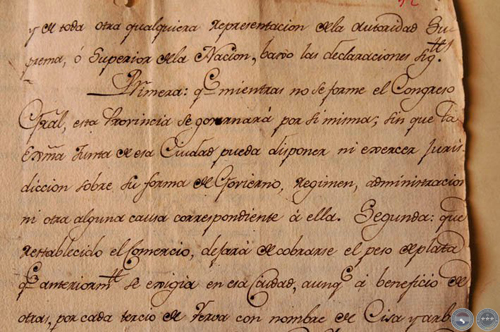 y de toda otra qualquiera representacion de la autoridad Su
prema, ó Superior de la Nacion, baxo las declaraciones sig.tes
Primera: q.e mientras no se forme el Congreso
Gral, esta Provincia se governará por si misma, sin que la
Exma Junta de esa Ciudad pueda disponer ni exercer juris-
diccion sobre su forma de Govierno, Regimen, administracion
ni otra alguna causa correspondiente á ella. Segunda: que
restablecido el Comercio, dexará de cobrarse el peso de plata
q.e anteriorm.te se exigia en esa Ciudad, aunq.e á beneficio de
otras, por cada tercio de Yerva con nombre de Sisa y arbi